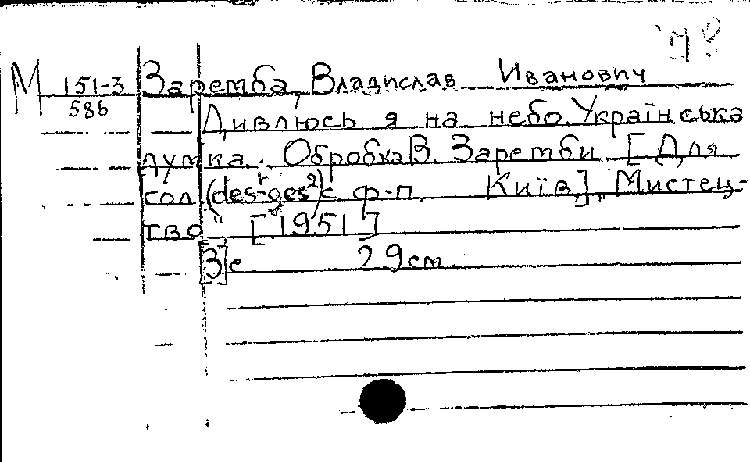 М 151-3 Заремба, Владислав Иванович
586
Дивлюсь я на небо. Українська
думка. Обробка В. Заремби. [Для
сол. (des-ges²) с ф-п. Київ,] „Мистец-
тво" [1951]
[3] с. 29 см.